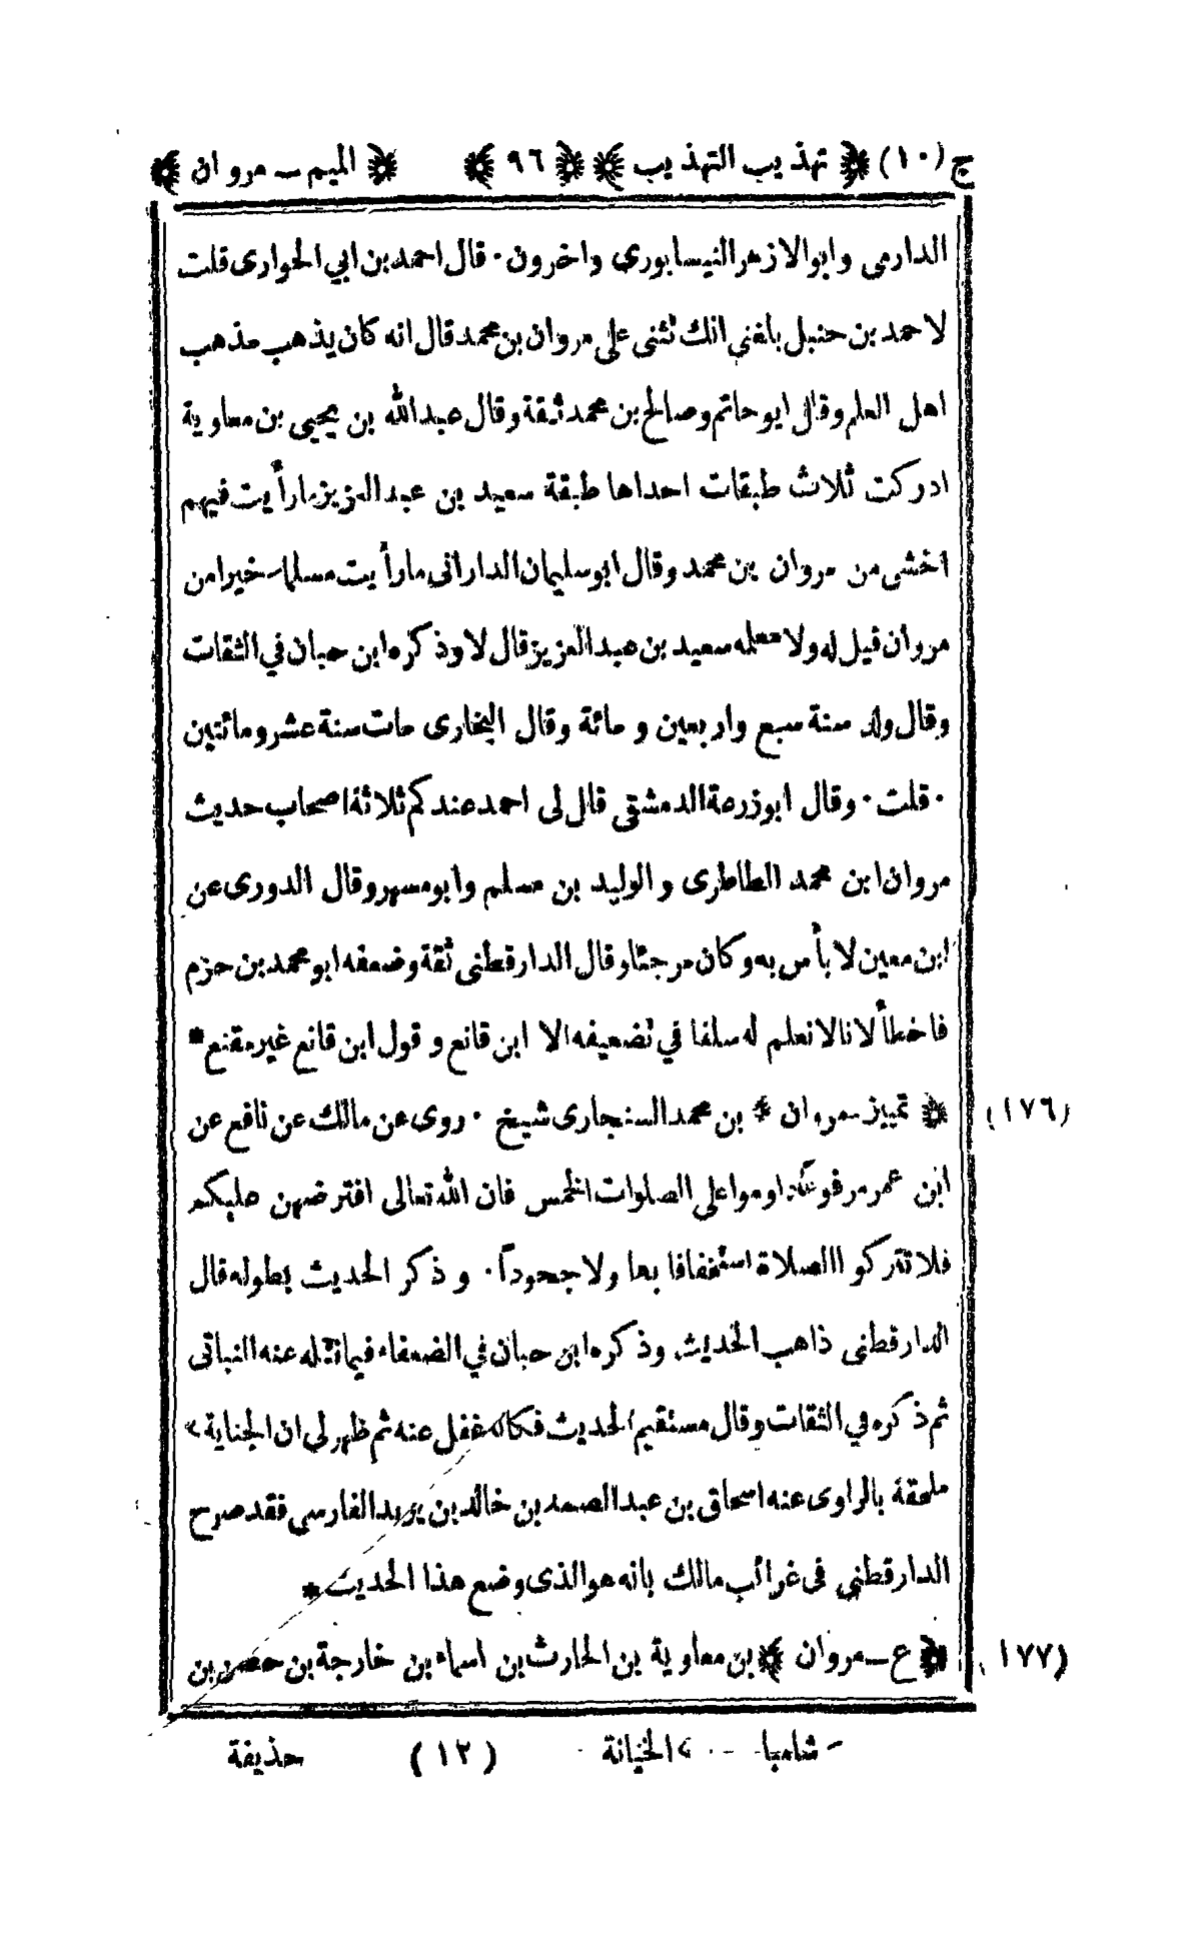 ج (١٠) تهذيب التهذيب ٩٦ الميم ـ مروان
الدارمى وابوالازهر النيسابورى واخرون ٠ قال احمد بن ابي الحوارى قلت
لاحمد بن حنبل بلغنى انك تثنى على مروان بن محمد قال انه كان يذهب مذهب
اهل العلم وقال ابو حاتم وصالح بن محمد ثقة وقال عبدالله بن يحيى بن معاوية
ادركت ثلاث طبقات احداها طبقة سعيد بن عبد العزيز مارأيت فيهم
اخشى من مروان بن محمد وقال ابو سليمان الدارانى مارأيت مسلما خيرا من
مروان قيل له ولا معلمه سعيد بن عبد العزيز قال لا وذكره ابن حبان في الثقات
وقال ولد سنة سبع واربعين و مائة وقال البخارى مات سنة عشر ومائتين
٠ قلت ٠ وقال ابوزرعة الدمشقى قال لى احمد عندكم ثلاثة اصحاب حديث
مروان ابن محمد الطاطرى و الوليد بن مسلم وابو مسهر وقال الدورى عن
ابن معين لا بأس به وكان مرجئا وقال الدارقطنى ثقة وضعفه ابو محمد بن حزم
فاخطأ لانا لا نعلم له سلفا في تضعيفه الا ابن قانع و قول ابن قانع غير مقنع *
(١٧٦) تمييز ـ مروان * بن محمد السنجارى شيخ ٠ روى عن مالك عن نافع عن
ابن عمر مرفوعا داوموا على الصلوات الخمس فان الله تعالى افترضهن عليكم
فلا تتركوا الصلاة استخفافا بها ولا جحوداً ٠ وذكر الحديث بطوله قال
الدارقطنى ذاهب الحديث وذكره ابن حبان في الضعفاء فيما نقله عنه النباتى
ثم ذكره في الثقات وقال مستقيم الحديث فكانه غفل عنه ثم ظهر لى ان الجناية ٢
ملحقة بالراوى عنه اسحاق بن عبد الصمد بن خالد بن يزيد الفارسى فقد صرح
الدارقطنى فى غرائب مالك بانه هو الذى وضع هذا الحديث *
(١٧٧) ع ـ مروان بن معاوية بن الحارث بن اسماء بن خارجة بن حصن بن
٢ الخيانة (١٢) حذيفة